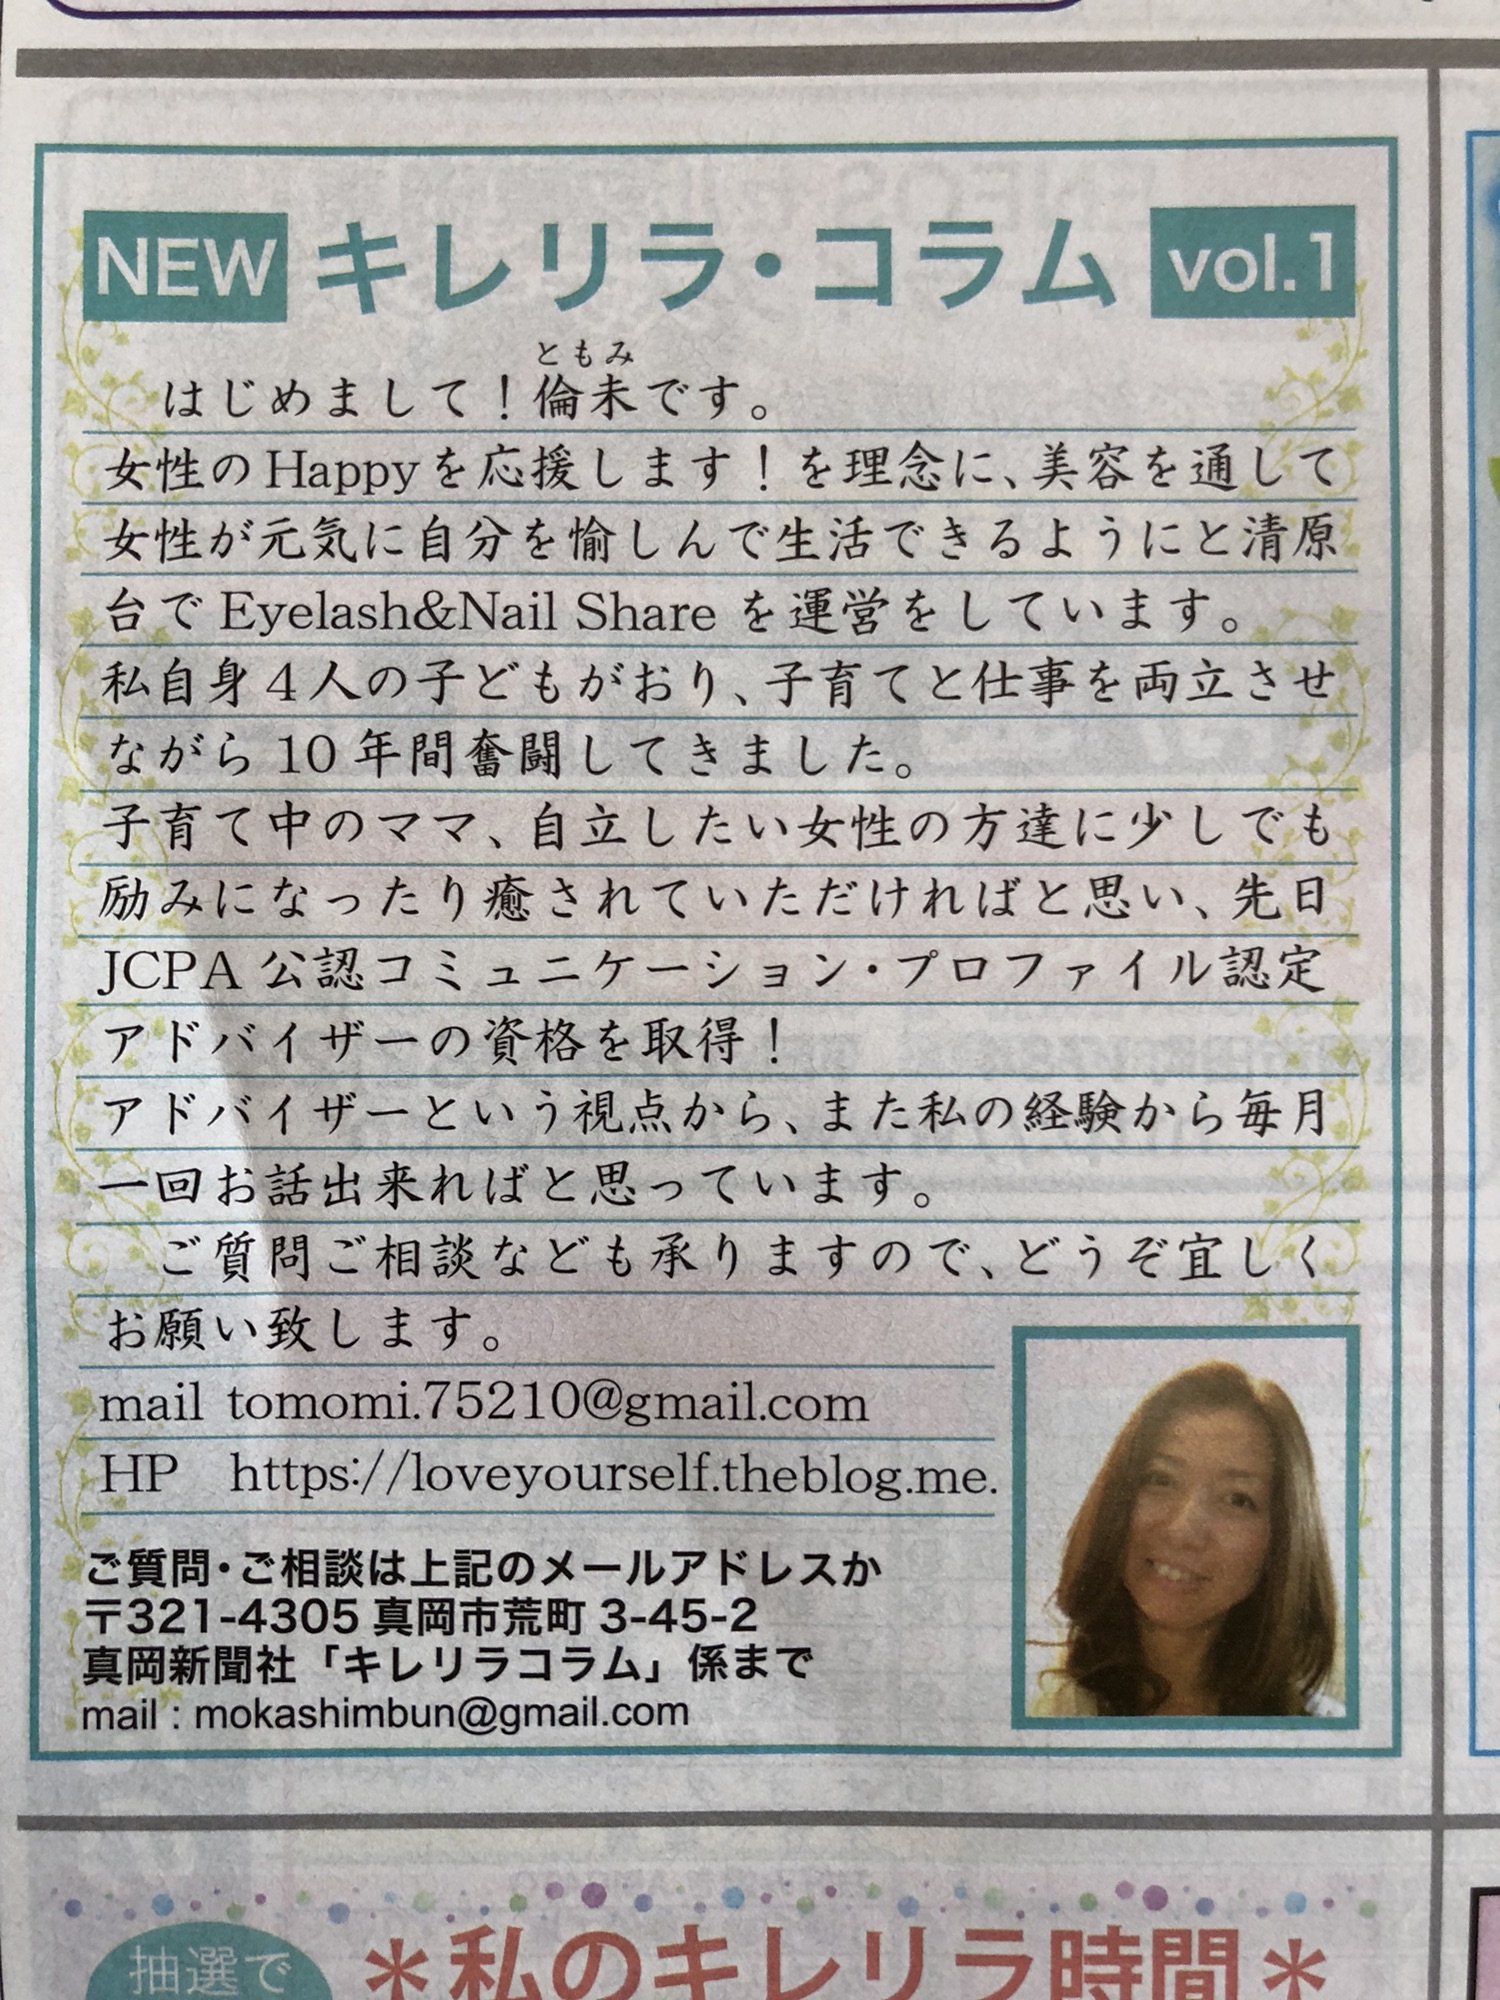 NEW キレリラ・コラム vol.1
ともみ
はじめまして！倫未です。
女性のHappyを応援します！を理念に、美容を通して
女性が元気に自分を愉しんで生活できるようにと清原
台でEyelash&Nail Share を運営をしています。
私自身４人の子どもがおり、子育てと仕事を両立させ
ながら10年間奮闘してきました。
子育て中のママ、自立したい女性の方達に少しでも
励みになったり癒されていただければと思い、先日
JCPA 公認コミュニケーション・プロファイル認定
アドバイザーの資格を取得！
アドバイザーという視点から、また私の経験から毎月
一回お話出来ればと思っています。
ご質問ご相談なども承りますので、どうぞ宜しく
お願い致します。
mail tomomi.75210@gmail.com
HP https://loveyourself.theblog.me.
ご質問・ご相談は上記のメールアドレスか
〒321-4305 真岡市荒町 3-45-2
真岡新聞社「キレリラコラム」係まで
mail : mokashimbun@gmail.com
抽選で
＊私のキレリラ時間＊